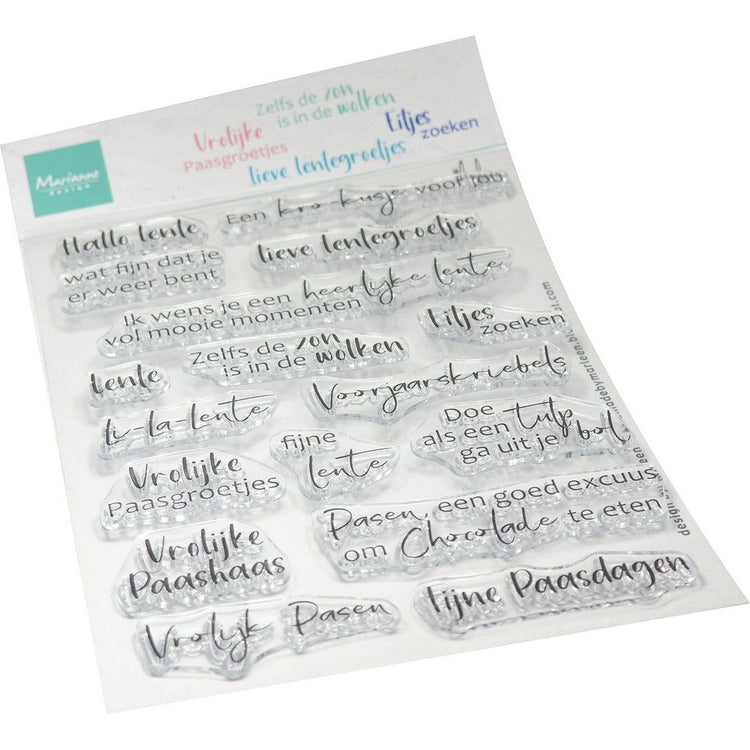 Zelfs de zon
is in de wolken
Vrolijke
Paasgroetjes
Eitjes
zoeken
lieve lentegroetjes
Marianne
DESIGN
Een kro-kusje voor jou
Hallo lente
lieve lentegroetjes
wat fijn dat je
er weer bent
Ik wens je een heerlijke lente
vol mooie momenten
Eitjes
zoeken
Zelfs de zon
is in de wolken
lente
Voorjaarskriebels
li-la-lente
Doe
als een tulp
ga uit je bol
fijne
lente
Vrolijke
Paasgroetjes
Pasen, een goed excuus
om Chocolade te eten
Vrolijke
Paashaas
Fijne Paasdagen
Vrolijk Pasen
design